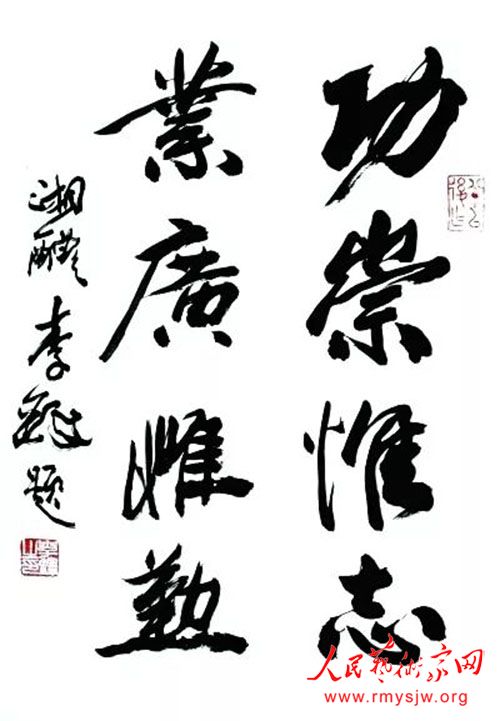 功崇惟志
業廣惟勤
湘醴李鐸題
人民藝術家网
www.rmysjw.org